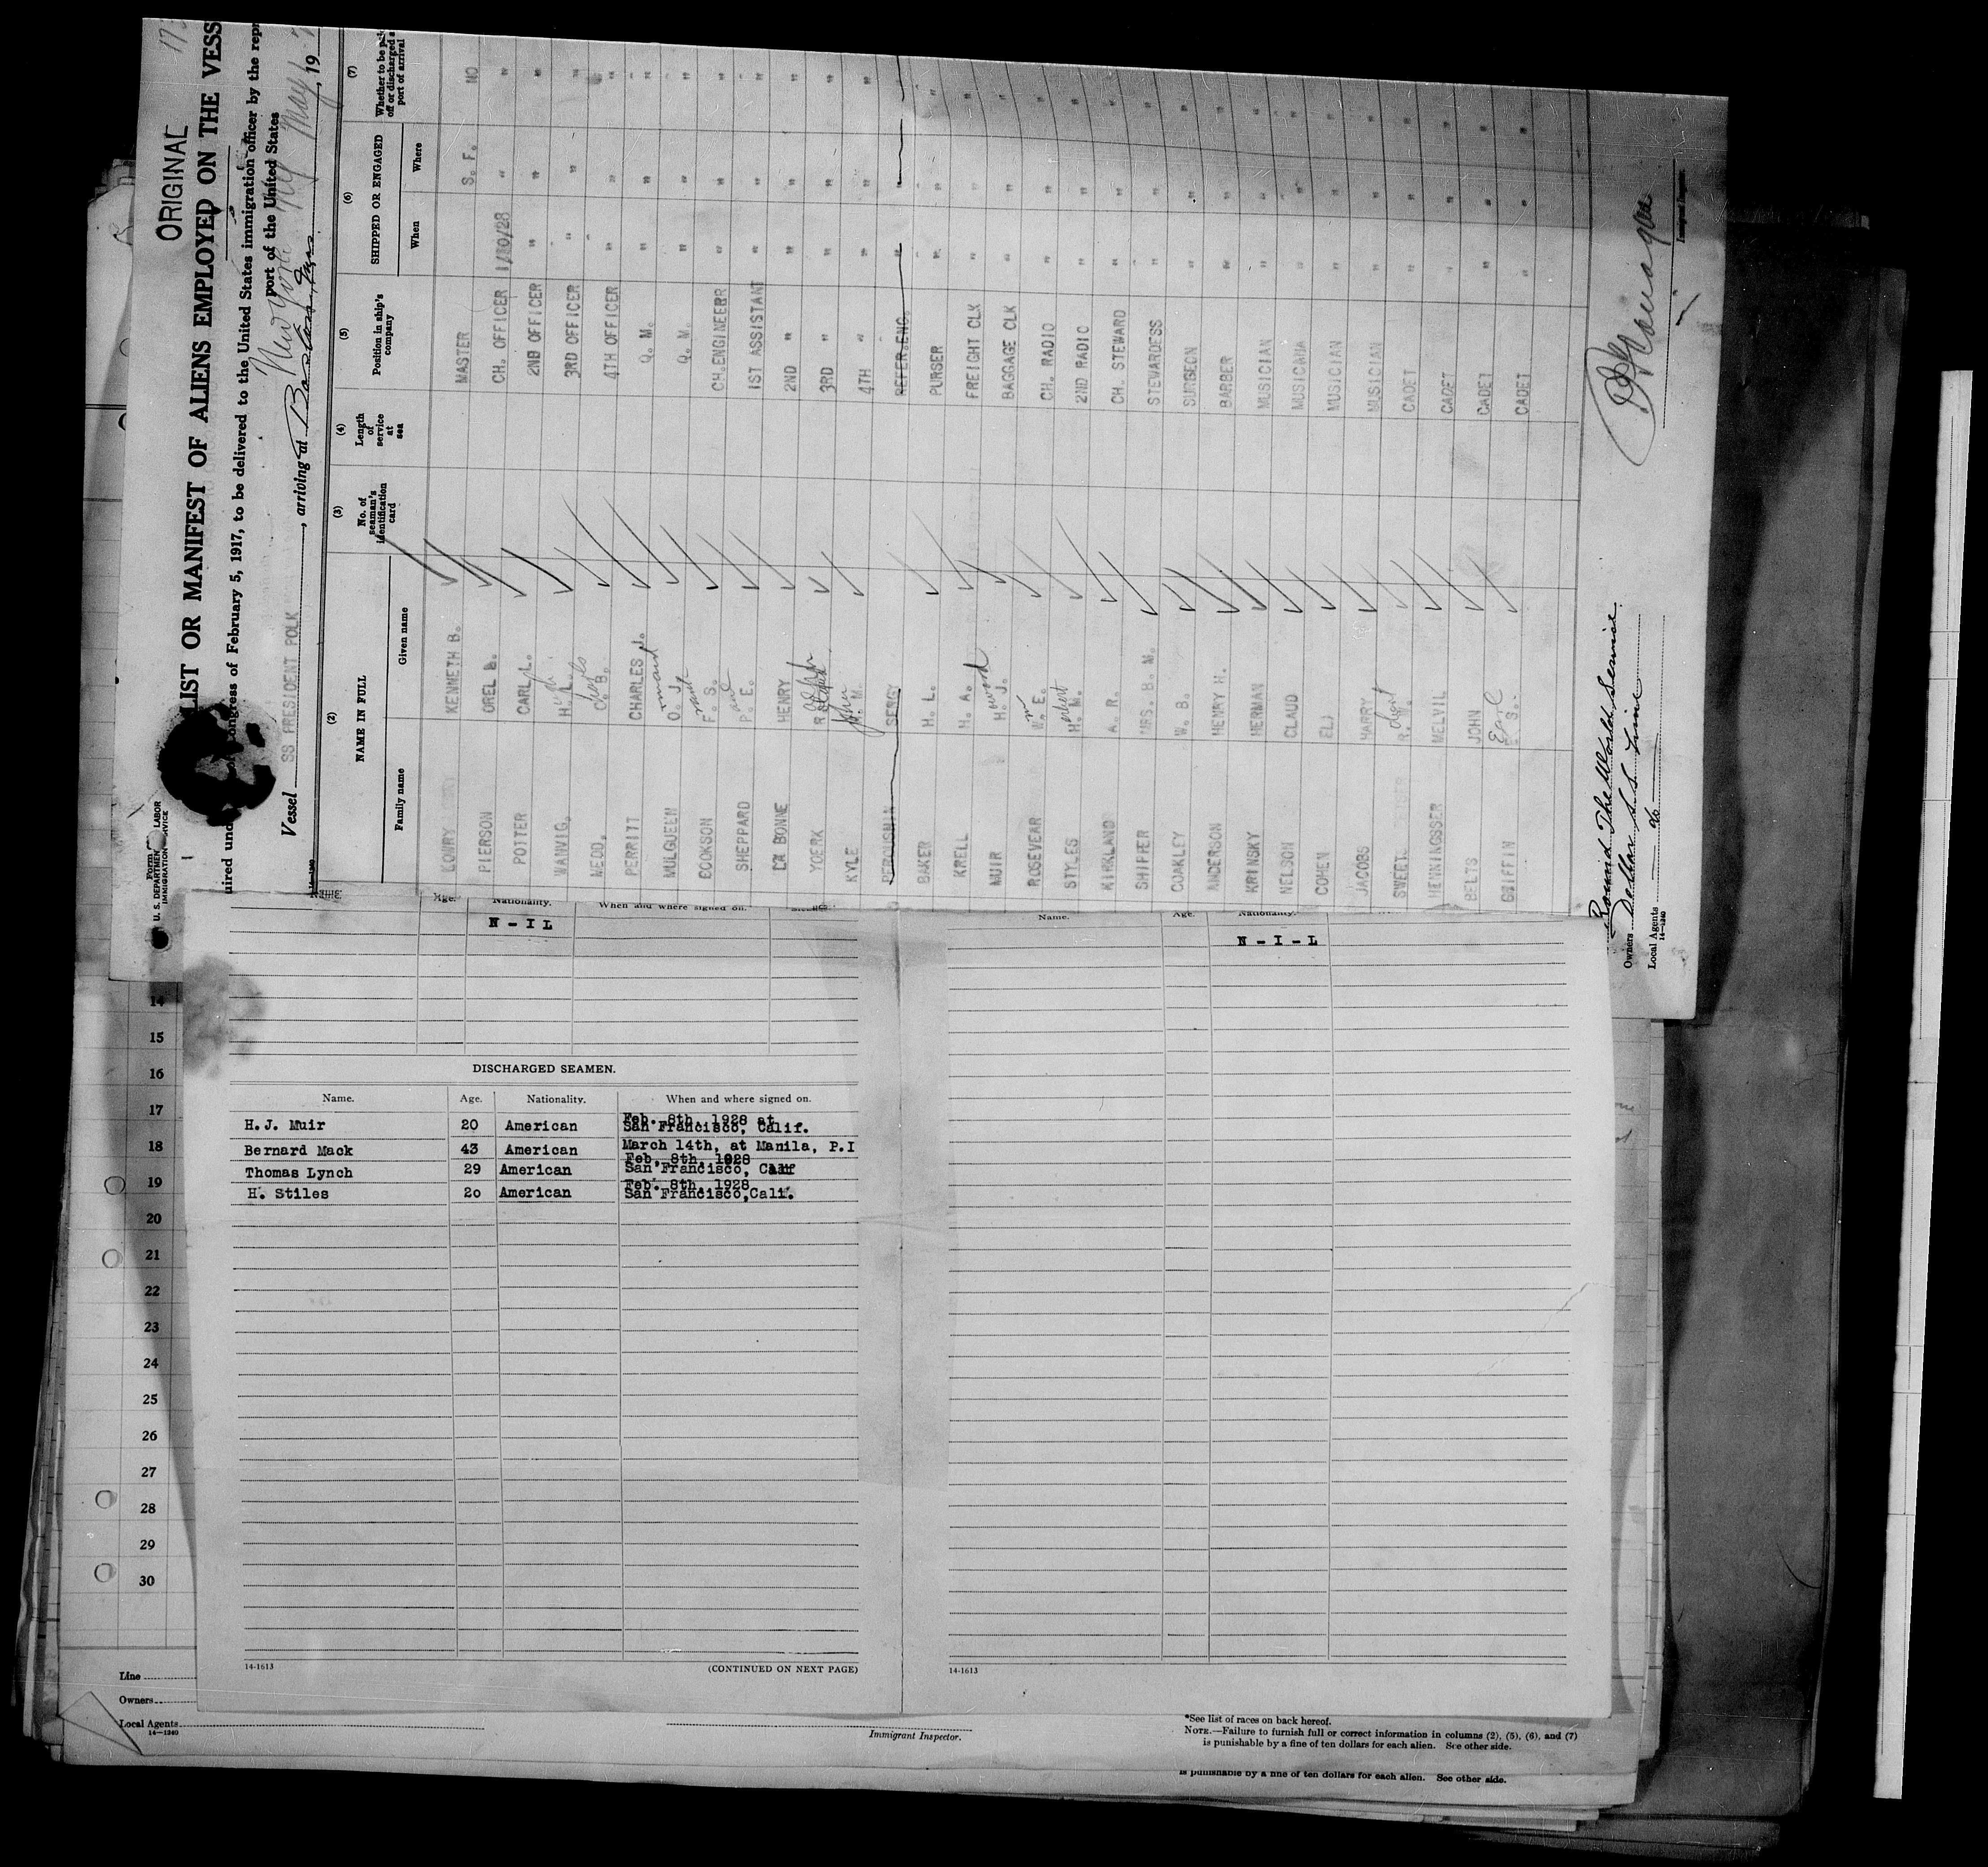 ORIGINAL
LIST OR MANIFEST OF ALIENS EMPLOYED ON THE VESS
uired und ongress of February 5, 1917, to be delivered to the United States immigration officer by the repr
port of the United States
New York NY May
Vessel SS PRESIDENT POLK, arriving at Boston, Mass. , 19
Form
U. S. DEPARTMEN LABOR
IMMIGRATION VICE
14-1240
(2) (3) (4) (5) (6) (7)
NAME IN FULL No. of seaman's identification card Length of service at sea Position in ship's company SHIPPED OR ENGAGED Whether to be paid off or discharged a port of arrival
Family name Given name When Where
LOWRY KENNETH B. MASTER S. F. NO
PIERSON OREL CH. OFFICER 1/30/28 " "
POTTER CARL L. 2NB OFFICER " " "
WANVIG. H. 3RD OFFICER " " "
WEDD. Charles C. B. 4TH OFFICER " " "
PERRITT CHARLES J. Q. M. " " "
MULQUEEN O. J. Q. M. " " "
COOKSON F. S. CH. ENGINEEBR " " "
SHEPPARD P. E. 1ST ASSISTANT " " "
LA BONNE HENRY 2ND " " " "
YOERK R 3RD " " " "
KYLE John M. 4TH " " " "
SERGY REFER.ENG. " " "
BAKER H. L. PURSER " " "
KRELL N. A. FREIGHT CLK " " "
MUIR H. J. BAGGAGE CLK " " "
ROSEVEAR W. E. CH. RADIO " " "
STYLES Herbert H. M. 2ND RADIO " " "
KIRKLAND A. R. CH. STEWARD " " "
SHIFFER MRS. B. M. STEWARDESS " " "
COAKLEY W. B. SURGEON " " "
ANDERSON HENRY H. BARBER " " "
KRINSKY HERMAN MUSICIAN " " "
NELSON CLAUD MUSICANA " " "
COHEN ELI MUSICIAN " " "
JACOBS HARRY MUSICIAN " " "
SWEET R. CADET " " "
HENNINGSSER MELVIL CADET " " "
BELTS JOHN CADET " " "
GRIFFIN Earl S. CADET " " "
Round The World Service
Owners Dollar S S Line
Local Agents do
14-1240
Immigrant Inspector.
Age. Nationality. When and where signed on.
N - I L
Name. Age. Nationality.
N - I - L
DISCHARGED SEAMEN.
Name. Age. Nationality. When and where signed on.
H.J. Muir 20 American Feb. 8th, 1928 at San Francisco, Calif.
Bernard Mack 43 American March 14th, at Manila, P.I
Thomas Lynch 29 American Feb. 8th, 1928 San Francisco, Calif
H. Stiles 20 American Feb. 8th, 1928 San Francisco,Calif.
14-1613
(CONTINUED ON NEXT PAGE)
14-1613
14
15
16
17
18
19
20
21
22
23
24
25
26
27
28
29
30
Line
Owners
Local Agents
14-1240
Immigrant Inspector.
*See list of races on back hereof.
NOTE.—Failure to furnish full or correct information in columns (2), (5), (6), and (7)
is punishable by a fine of ten dollars for each alien. See other side.
is punishable by a fine of ten dollars for each alien. See other side.